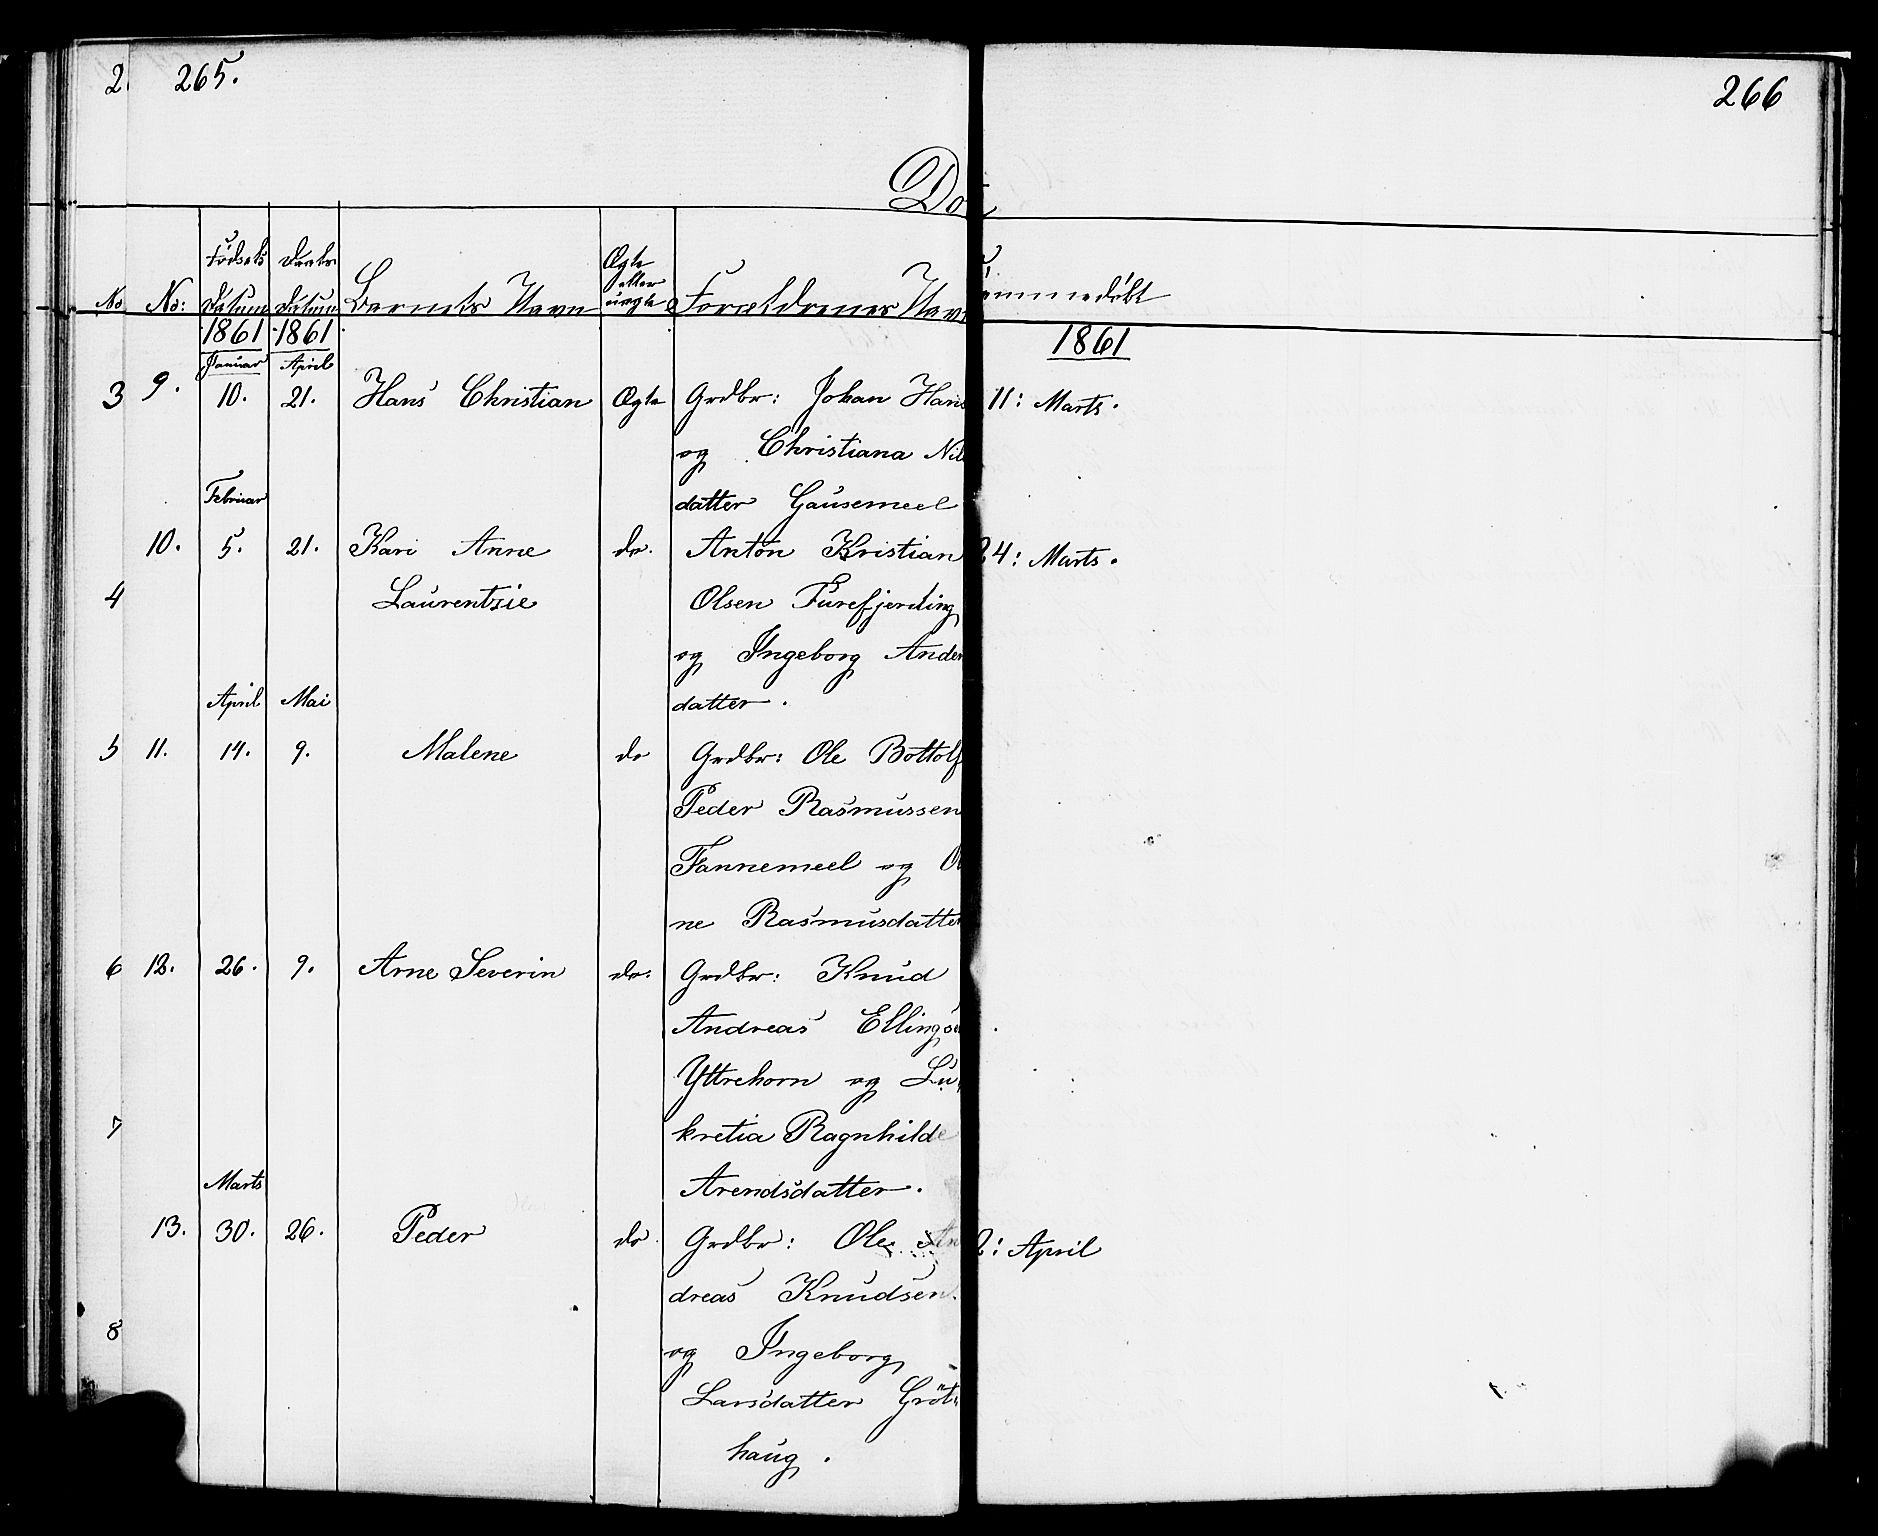 2 265. 266
Dø
No No: Fødsels Datum Daabs Datum Barnets Navn Ægte eller uægte Forældrenes Nav emmedøbt
1861 1861 1861
Januar April
3 9. 10. 21. Hans Christian Ægte Grdbr: Johan Hans 11: Marts.
og Christiana Nil
Februar datter Gausemeel
10. 5. 21. Kari Anne do. Anton Kristian 24: Marts.
4 Laurentzie Olsen Furefjerding
og Ingeborg Ander
April Mai datter.
5 11. 14. 9. Malene do Grdbr: Ole Bottolf
Peder Rasmussen
Fannemeel og
ne Rasmusdatter
6 12. 26. 9. Arne Severin do: Grdbr: Knud
Andreas Ellingse
Yttrehorn og Lu
7 kretia Ragnhilde
Marts Arendsdatter.
13. 30. 26. Peder do Grdbr: Ole An 2: April
dreas Knudsen
8 og Ingeborg
Larsdatter Gröt
haug.